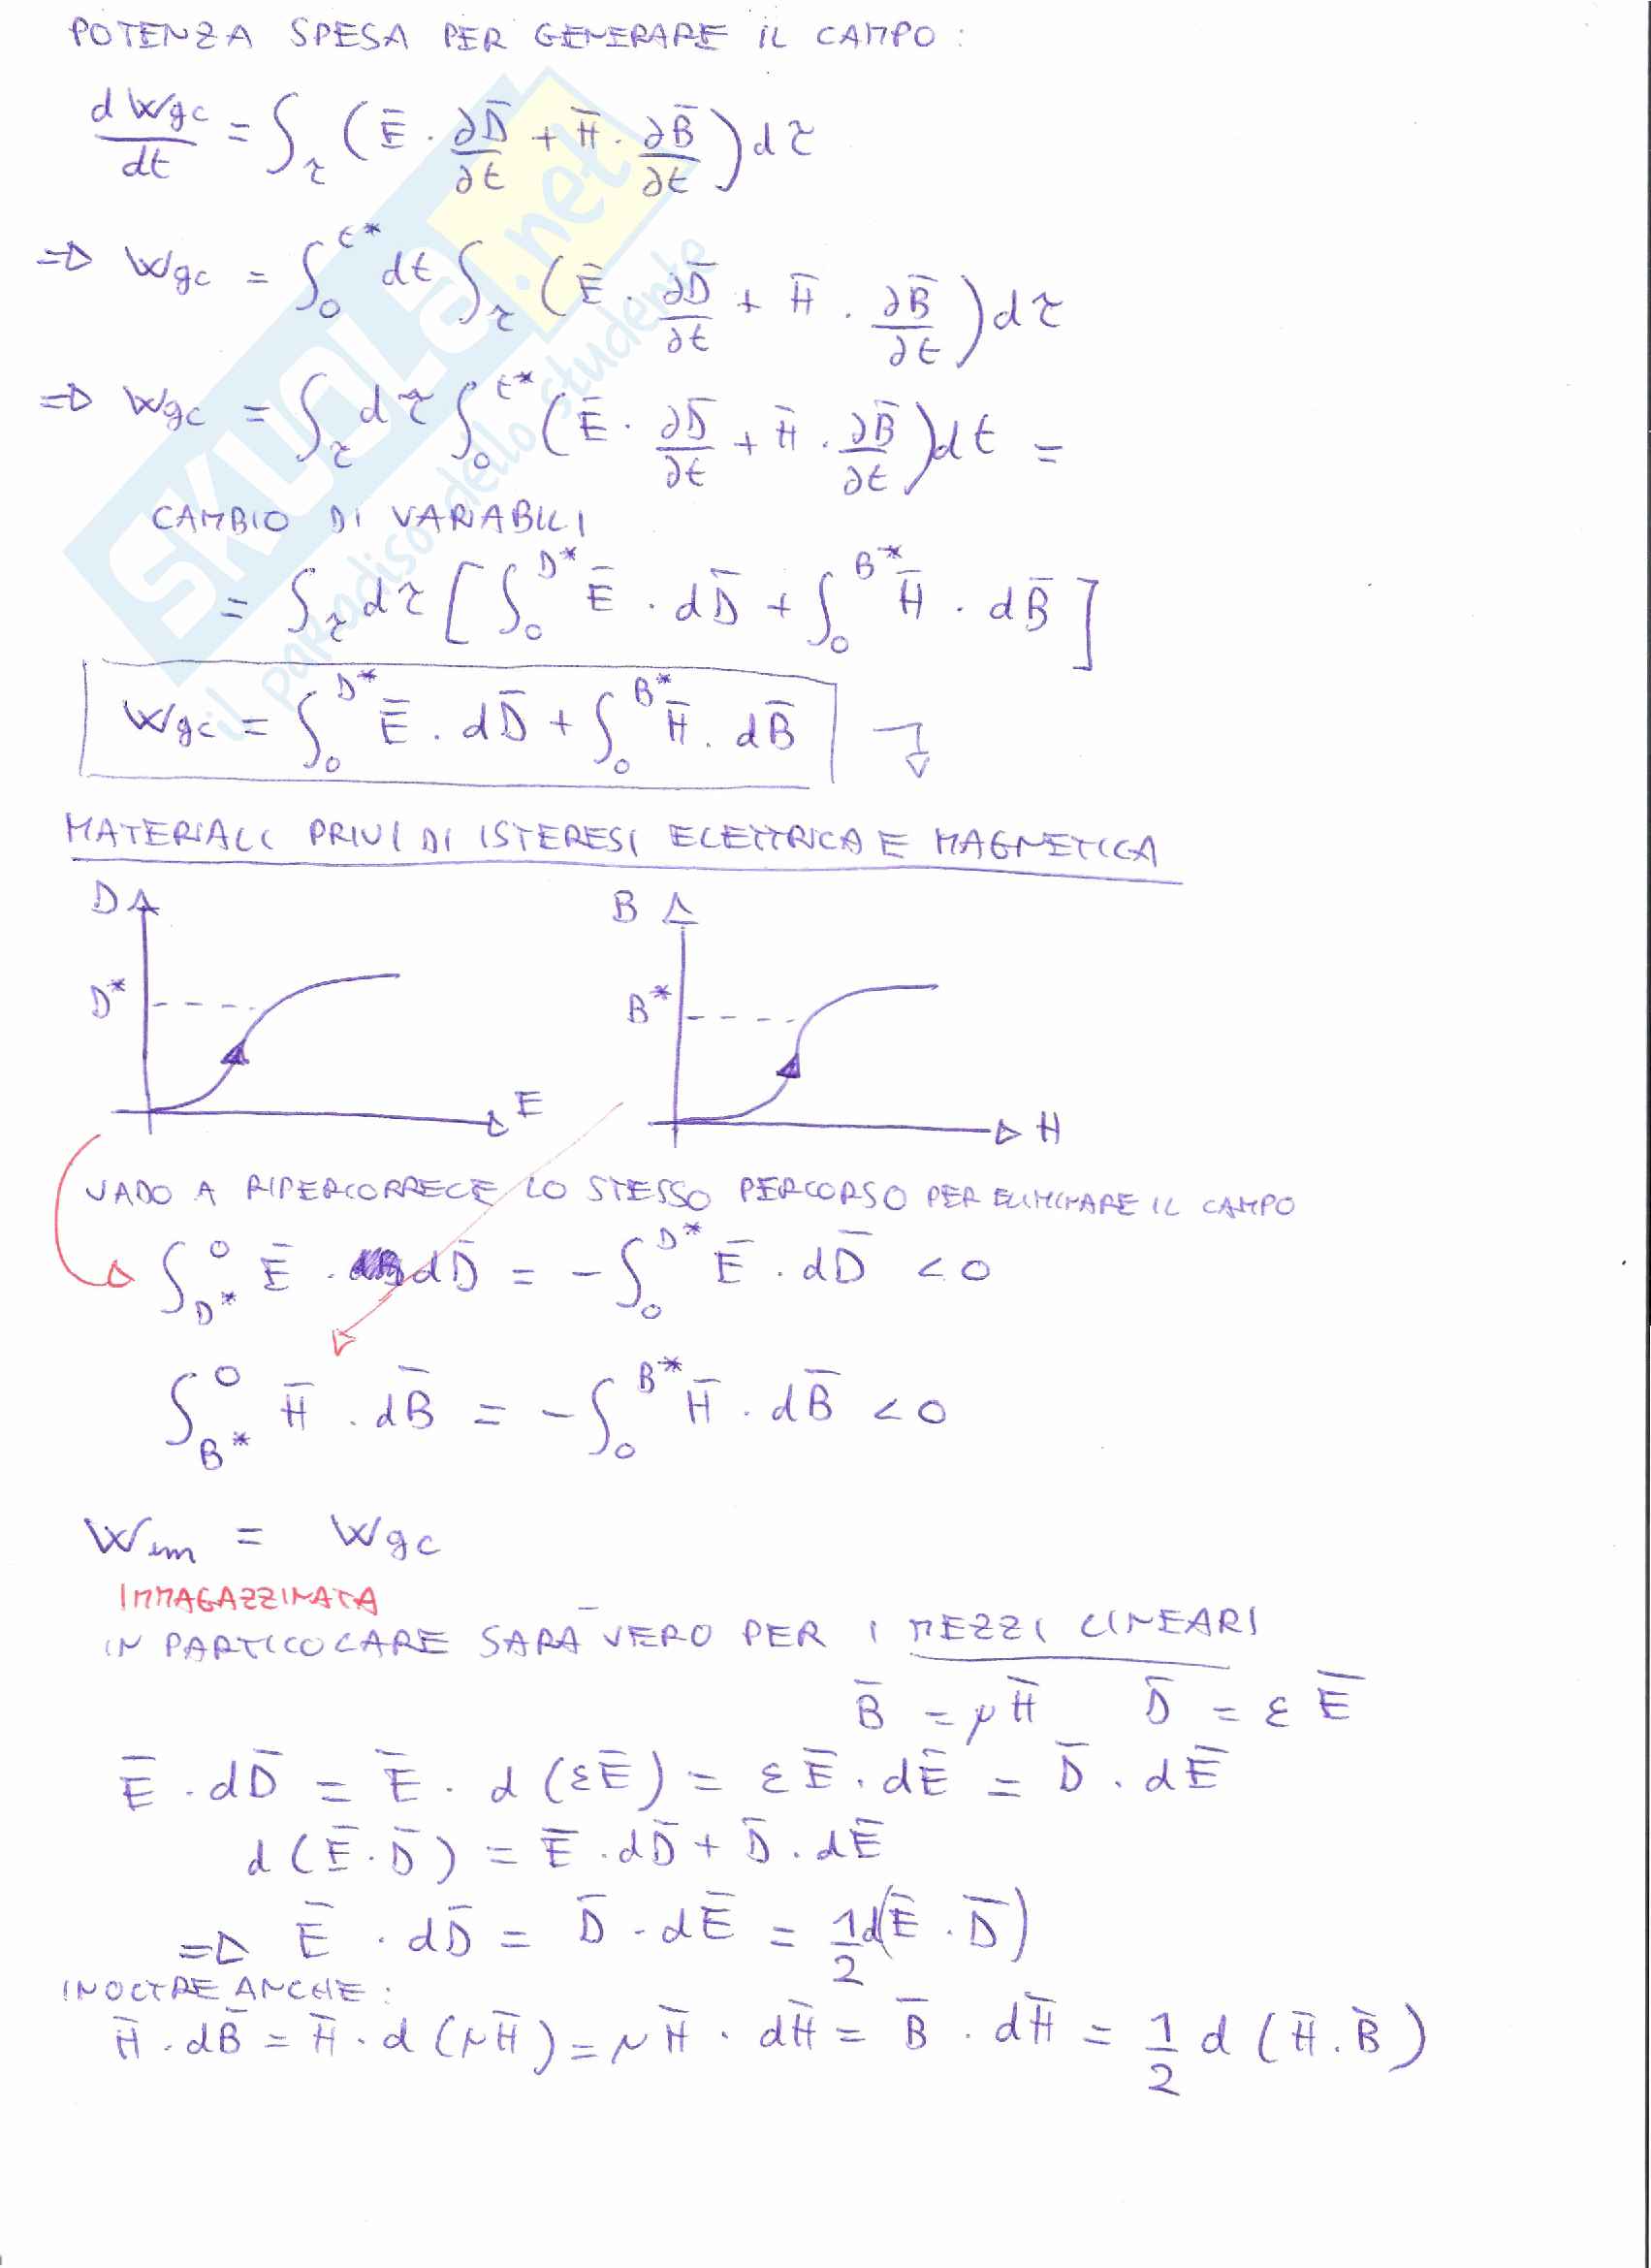 POTENZA SPESA PER GENERARE IL CAMPO :
dWgc/dt = ∫τ (Ē · ∂D̄/∂t + H̄ · ∂B̄/∂t) dτ
=> Wgc = ∫₀^t* dt ∫τ (Ē · ∂D̄/∂t + H̄ · ∂B̄/∂t) dτ
=> Wgc = ∫τ dτ ∫₀^t* (Ē · ∂D̄/∂t + H̄ · ∂B̄/∂t) dt =
CAMBIO DI VARIABILI
= ∫τ dτ [∫₀^D* Ē · dD̄ + ∫₀^B* H̄ · dB̄]
Wgc = ∫₀^D* Ē · dD̄ + ∫₀^B* H̄ · dB̄
MATERIALI PRIVI DI ISTERESI ELETTRICA E MAGNETICA
D B
D* B*
E H
VADO A RIPERCORRERE LO STESSO PERCORSO PER ELIMINARE IL CAMPO
∫_D*^0 Ē · dD̄ = - ∫₀^D* Ē · dD̄ < 0
∫_B*^0 H̄ · dB̄ = - ∫₀^B* H̄ · dB̄ < 0
Wem = Wgc
IMMAGAZZINATA
IN PARTICOLARE SARÀ VERO PER I MEZZI LINEARI
B̄ = μH̄ D̄ = εĒ
Ē · dD̄ = Ē · d(εĒ) = εĒ · dĒ = D̄ · dĒ
d(Ē · D̄) = Ē · dD̄ + D̄ · dĒ
=> Ē · dD̄ = D̄ · dĒ = 1/2 d(Ē · D̄)
INOLTRE ANCHE :
H̄ · dB̄ = H̄ · d(μH̄) = μH̄ · dH̄ = B̄ · dH̄ = 1/2 d(H̄ · B̄)
SKUOLA.net
il paradiso dello studente